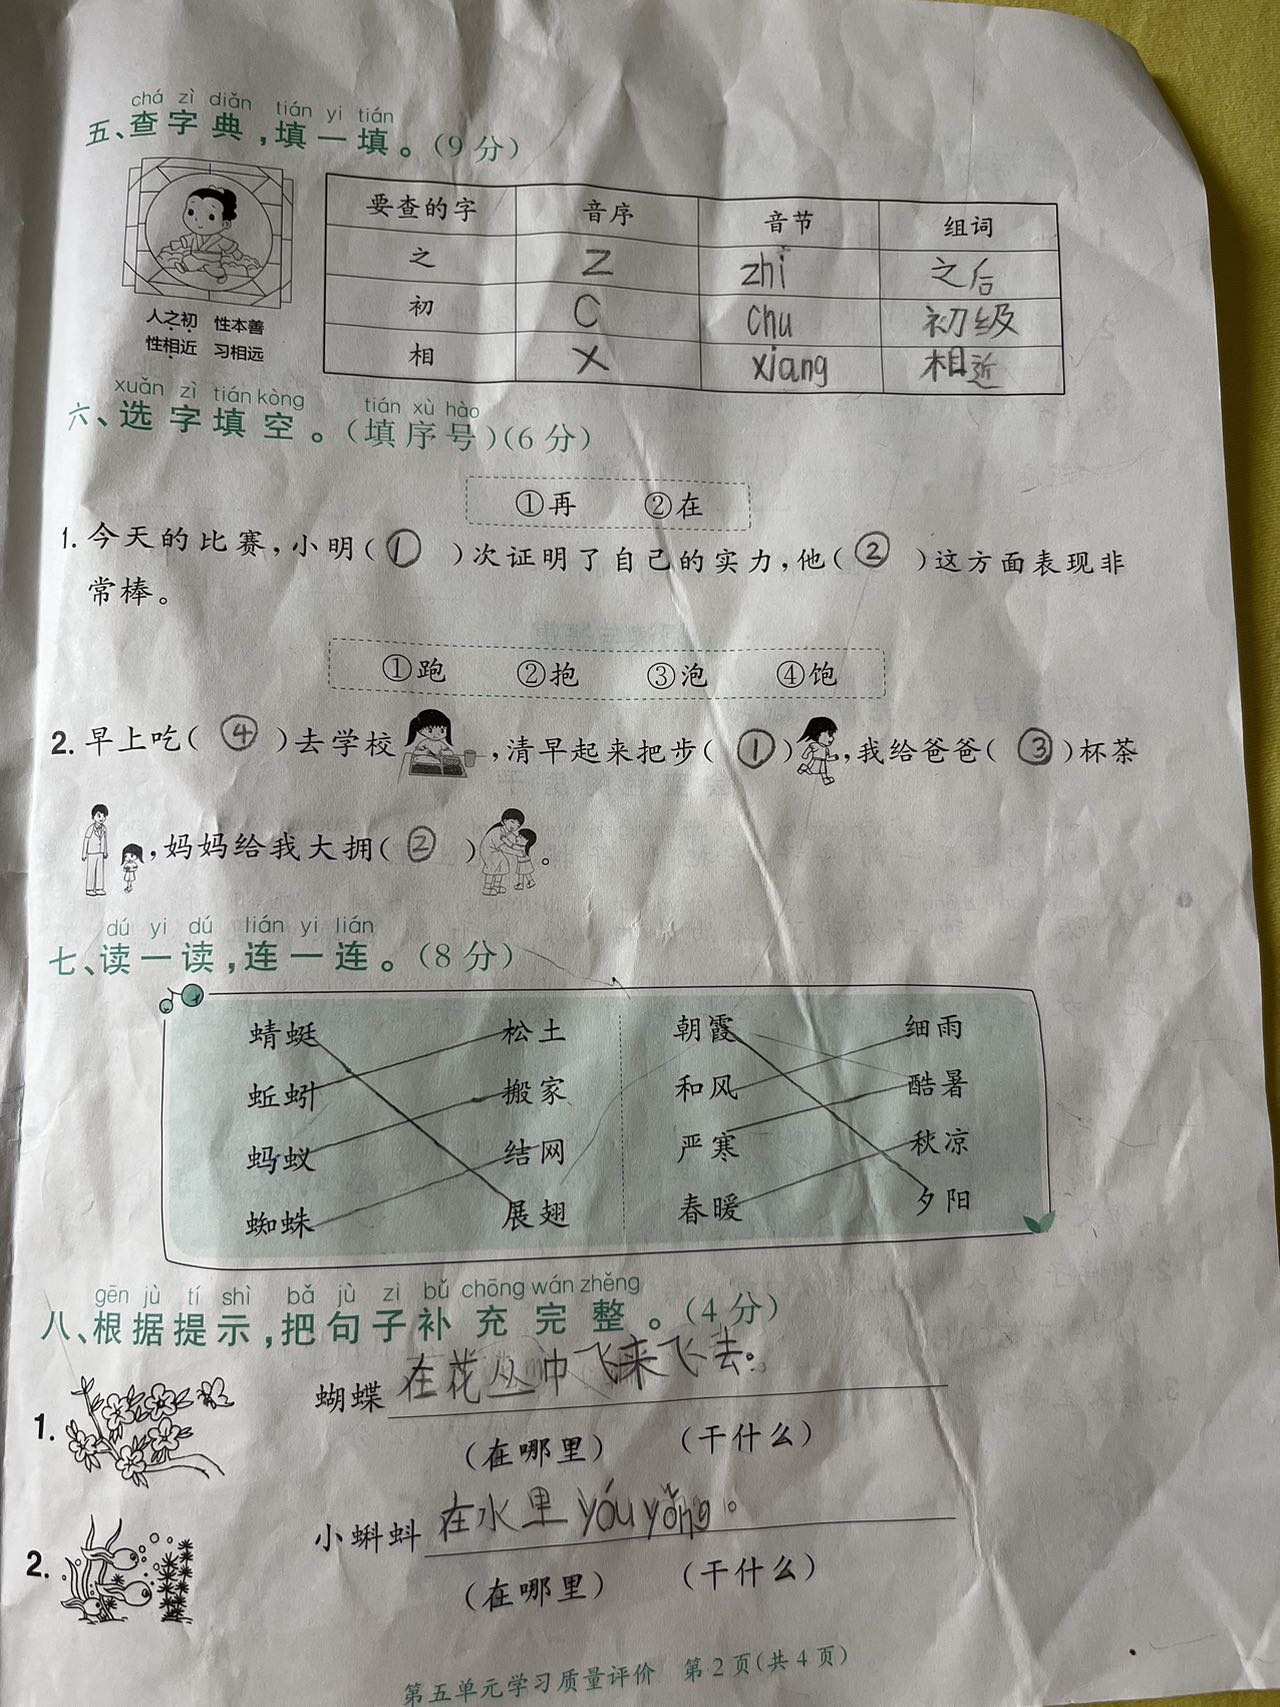 chá zì diǎn tián yi tián
五、查字典，填一填。（9分）
要查的字 音序 音节 组词
之 Z zhi 之后
初 C chu 初级
相 X xiang 相近
人之初 性本善
性相近 习相远
xuǎn zì tián kòng tián xù hào
六、选字填空。（填序号）（6分）
①再 ②在
1. 今天的比赛，小明（ ① ）次证明了自己的实力，他（ ② ）这方面表现非
常棒。
①跑 ②抱 ③泡 ④饱
2. 早上吃（ ④ ）去学校，清早起来把步（ ① ），我给爸爸（ ③ ）杯茶
，妈妈给我大拥（ ② ）。
dú yi dú lián yi lián
七、读一读，连一连。（8分）
蜻蜓 松土 朝霞 细雨
蚯蚓 搬家 和风 酷暑
蚂蚁 结网 严寒 秋凉
蜘蛛 展翅 春暖 夕阳
gēn jù tí shì bǎ jù zi bǔ chōng wán zhěng
八、根据提示，把句子补充完整。（4分）
1. 蝴蝶在花丛中飞来飞去。
（在哪里） （干什么）
2. 小蝌蚪在水里yóu yǒng。
（在哪里） （干什么）
第五单元学习质量评价 第2页（共4页）